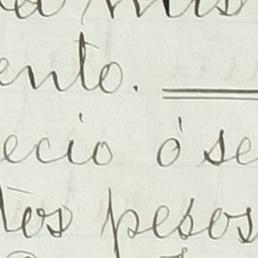 ento.
ecio ó se
tos pesos